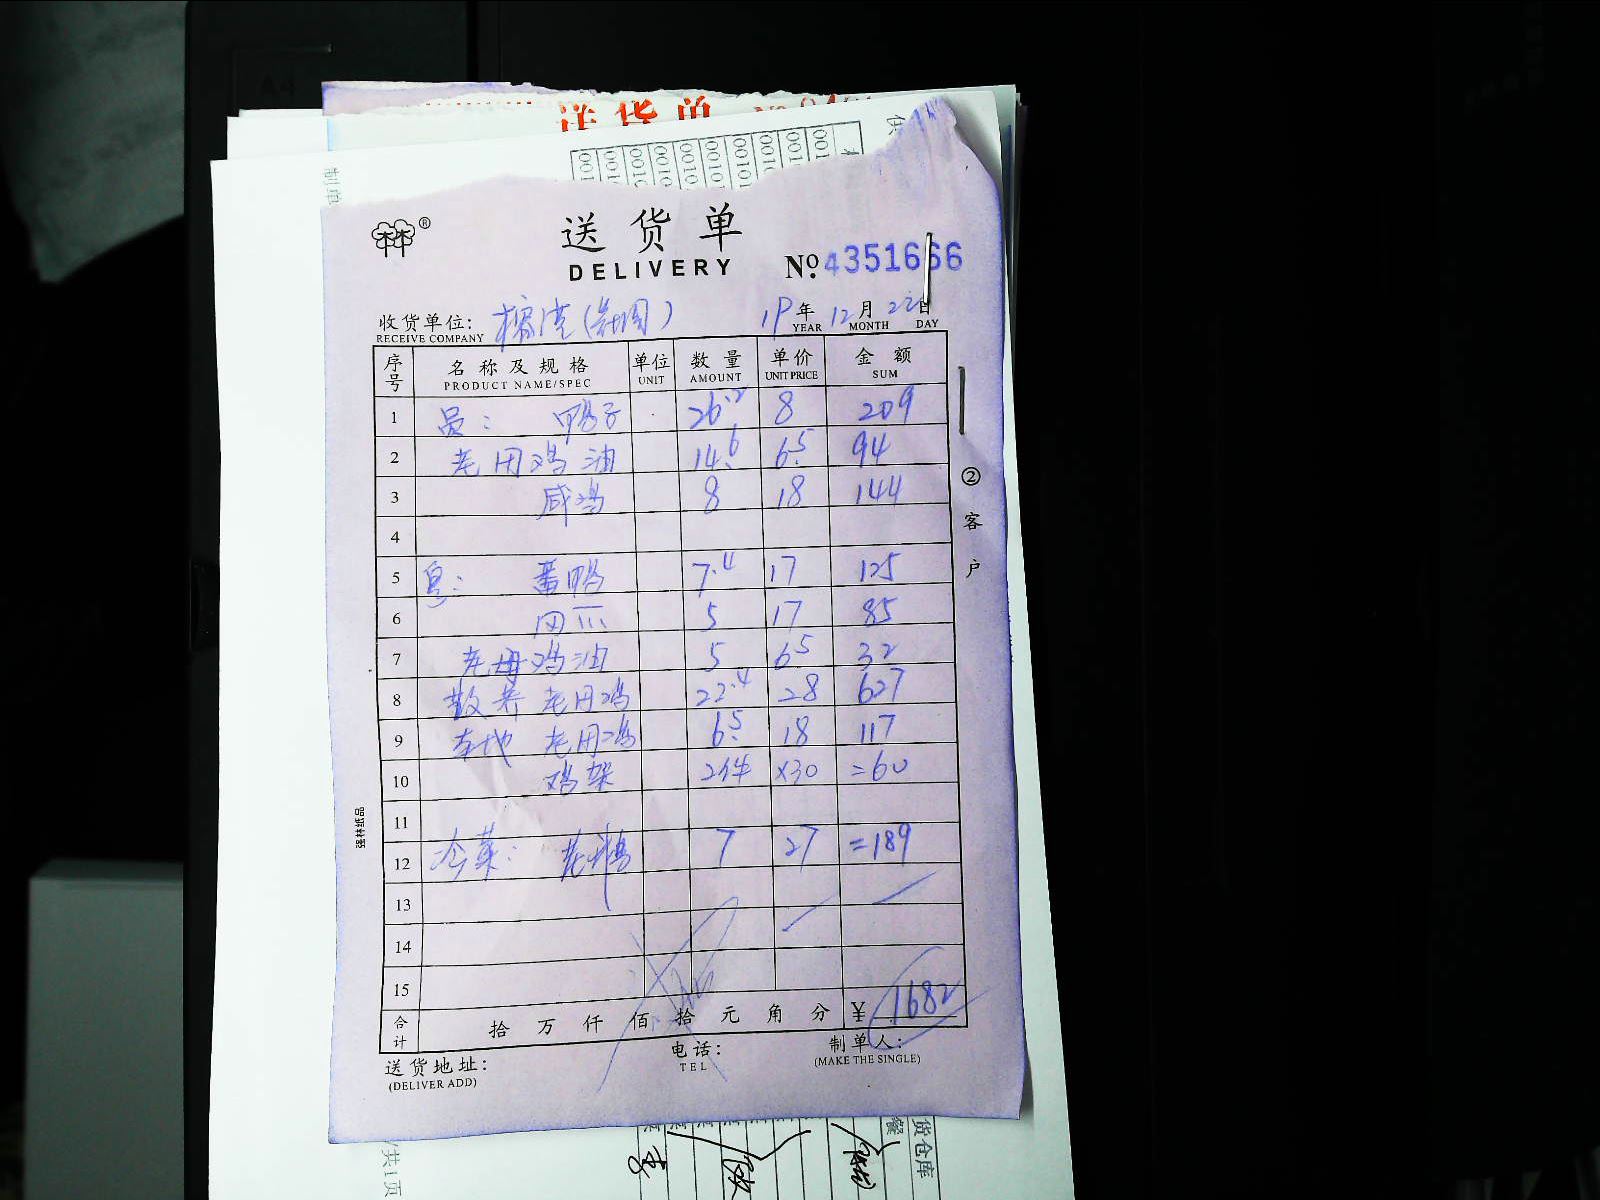 送货单
®
送货单
DELIVERY
No. 4351666
收货单位:
RECEIVE COMPANY
19年 12月 22日
YEAR MONTH DAY
序号 名称及规格 单位 数量 单价 金额
PRODUCT NAME/SPEC UNIT AMOUNT UNIT PRICE SUM
1 员: 鸭子 26.2 8 209
2 老用鸡油 14.6 6.5 94
3 咸鸡 8 18 144
4
5 番鸭 7.4 17 125
6 5 17 85
7 老母鸡油 5 6.5 32
8 散养 老用鸡 22.4 28 627
9 本地 老用鸡 6.5 18 117
10 鸡架 2件 ×30 =60
11
12 冷菜: 7 27 =189
13
14
15
合计 拾 万 仟 佰 拾 元 角 分 ¥ 1682
送货地址:
(DELIVER ADD)
电话:
TEL
制单人:
(MAKE THE SINGLE)
②客户
强林纸品
货仓库
/共1页